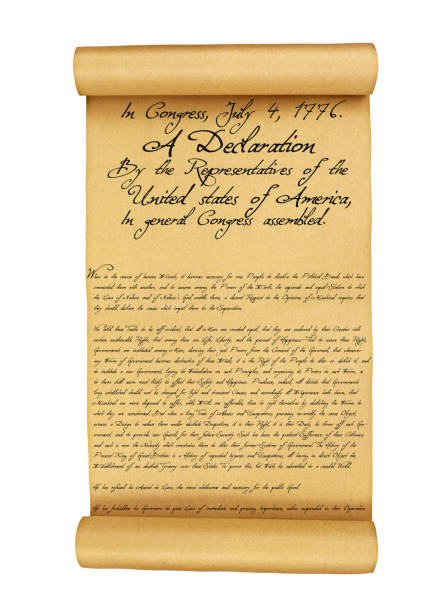 In Congress, July 4, 1776.
A Declaration
By the Representatives of the
United states of America,
In general Congress assembled.
When in the course of human Events, it becomes necessary for one People to dissolve the Political Bands which have
connected them with another, and to assume among the Powers of the Earth, the separate and equal Station to which
the Laws of Nature and of Nature's God entitle them, a decent Respect to the Opinions of Mankind requires that
they should declare the causes which impel them to the Separation.
We hold these Truths to be self-evident, that all Men are created equal, that they are endowed by their Creator with
certain unalienable Rights, that among these are Life, Liberty, and the pursuit of Happiness—That to secure these Rights,
Governments are instituted among Men, deriving their just Powers from the Consent of the Governed, that whenever
any Form of Government becomes destructive of these Ends, it is the Right of the People to alter or abolish it, and
to institute a new Government, laying its Foundation on such Principles, and organizing its Powers in such Form, as
to them shall seem most likely to effect their Safety and Happiness. Prudence, indeed, will dictate that Governments
long established should not be changed for light and transient Causes; and accordingly all Experience hath shewn, that
Mankind are more disposed to suffer, while Evils are sufferable, than to right themselves by abolishing the Forms to
which they are accustomed. But when a long Train of Abuses and Usurpations, pursuing invariably the same Object,
evinces a Design to reduce them under absolute Despotism, it is their Right, it is their Duty, to throw off such Government,
and to provide new Guards for their future Security. Such has been the patient Sufferance of these Colonies;
and such is now the Necessity which constrains them to alter their former Systems of Government. The History of the
Present King of Great-Britain is a History of repeated Injuries and Usurpations, all having in direct Object the
Establishment of an absolute Tyranny over these States. To prove this, let Facts be submitted to a candid World.
He has refused his Assent to Laws, the most wholesome and necessary for the public Good.
He has forbidden his Governors to pass Laws of immediate and pressing Importance, unless suspended in their Operation